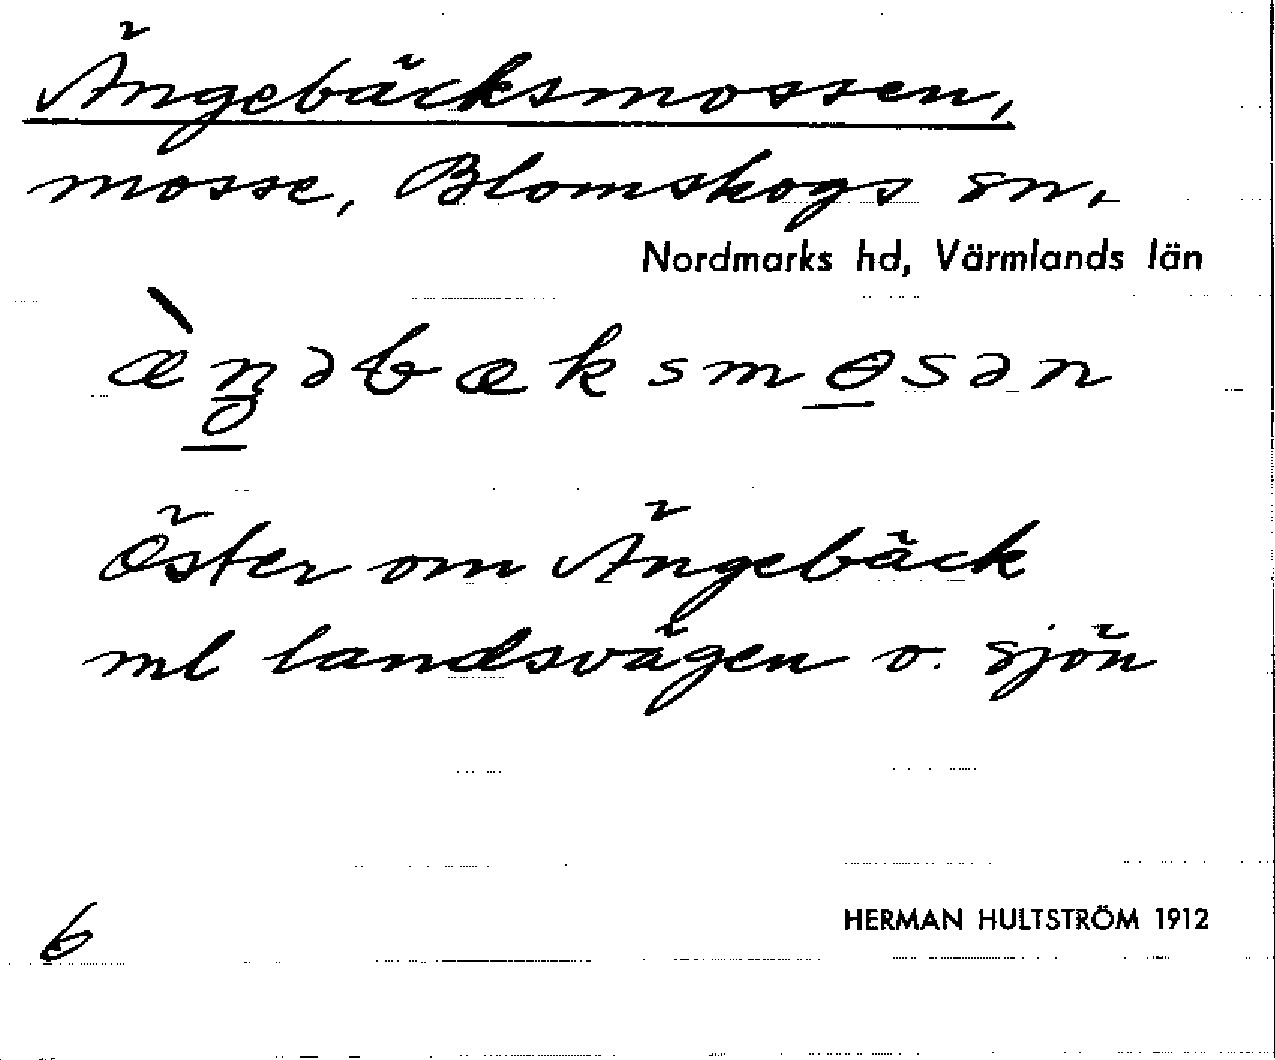 Ängebäcksmossen,
mosse, Blomskogs sn.
Nordmarks hd, Värmlands län
æ̀ŋəbæksmɵsən
Öster om Ängebäck
ml landsvägen o. sjön
6
HERMAN HULTSTRÖM 1912